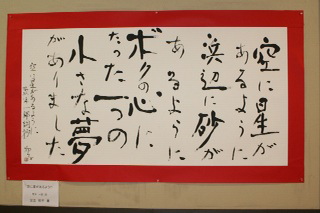 空に星が
あるように
浜辺に砂が
あるように
ボクの心に
たった一つの
小さな夢
がありました